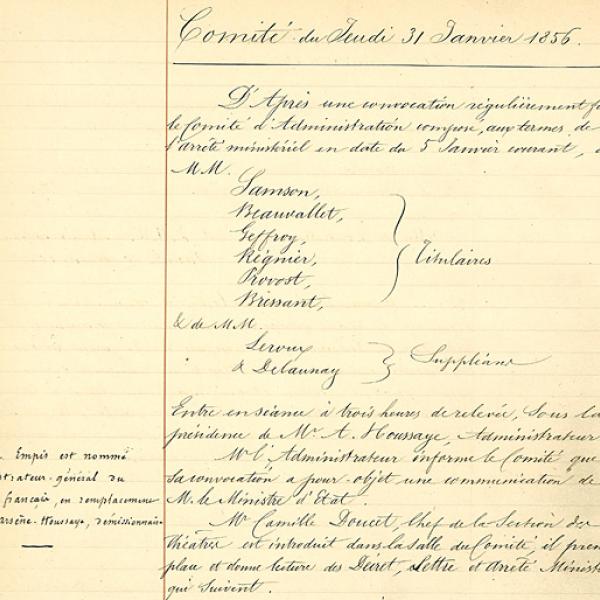 Comité du Jeudi 31 Janvier 1856.
D'Après une convocation régulièrement
le Comité d'Administration composé, aux termes de
l'arrêté ministériel en date du 5 Janvier courant,
MM.
Samson,
Beauvallet,
Geffroy,
Régnier,
Provost,
Bressant,
Titulaires
& de MM.
Leroux
& Delaunay
Suppléans
Entre en séance à trois heures de relevée, sous la
présidence de Mr. A. Houssaye, Administrateur
Mr l'Administrateur informe le Comité que
sa convocation a pour objet une communication de
M. le Ministre d'État.
Mr Camille Doucet, Chef de la Section des
théâtres est introduit dans la salle du Comité, il pren
place et donne lecture des Décret, Lettre et Arrêté Minist
qui suivent.
Empis est nommé
strateur général du
français, en remplacement
arsène Houssaye, démissionnaire